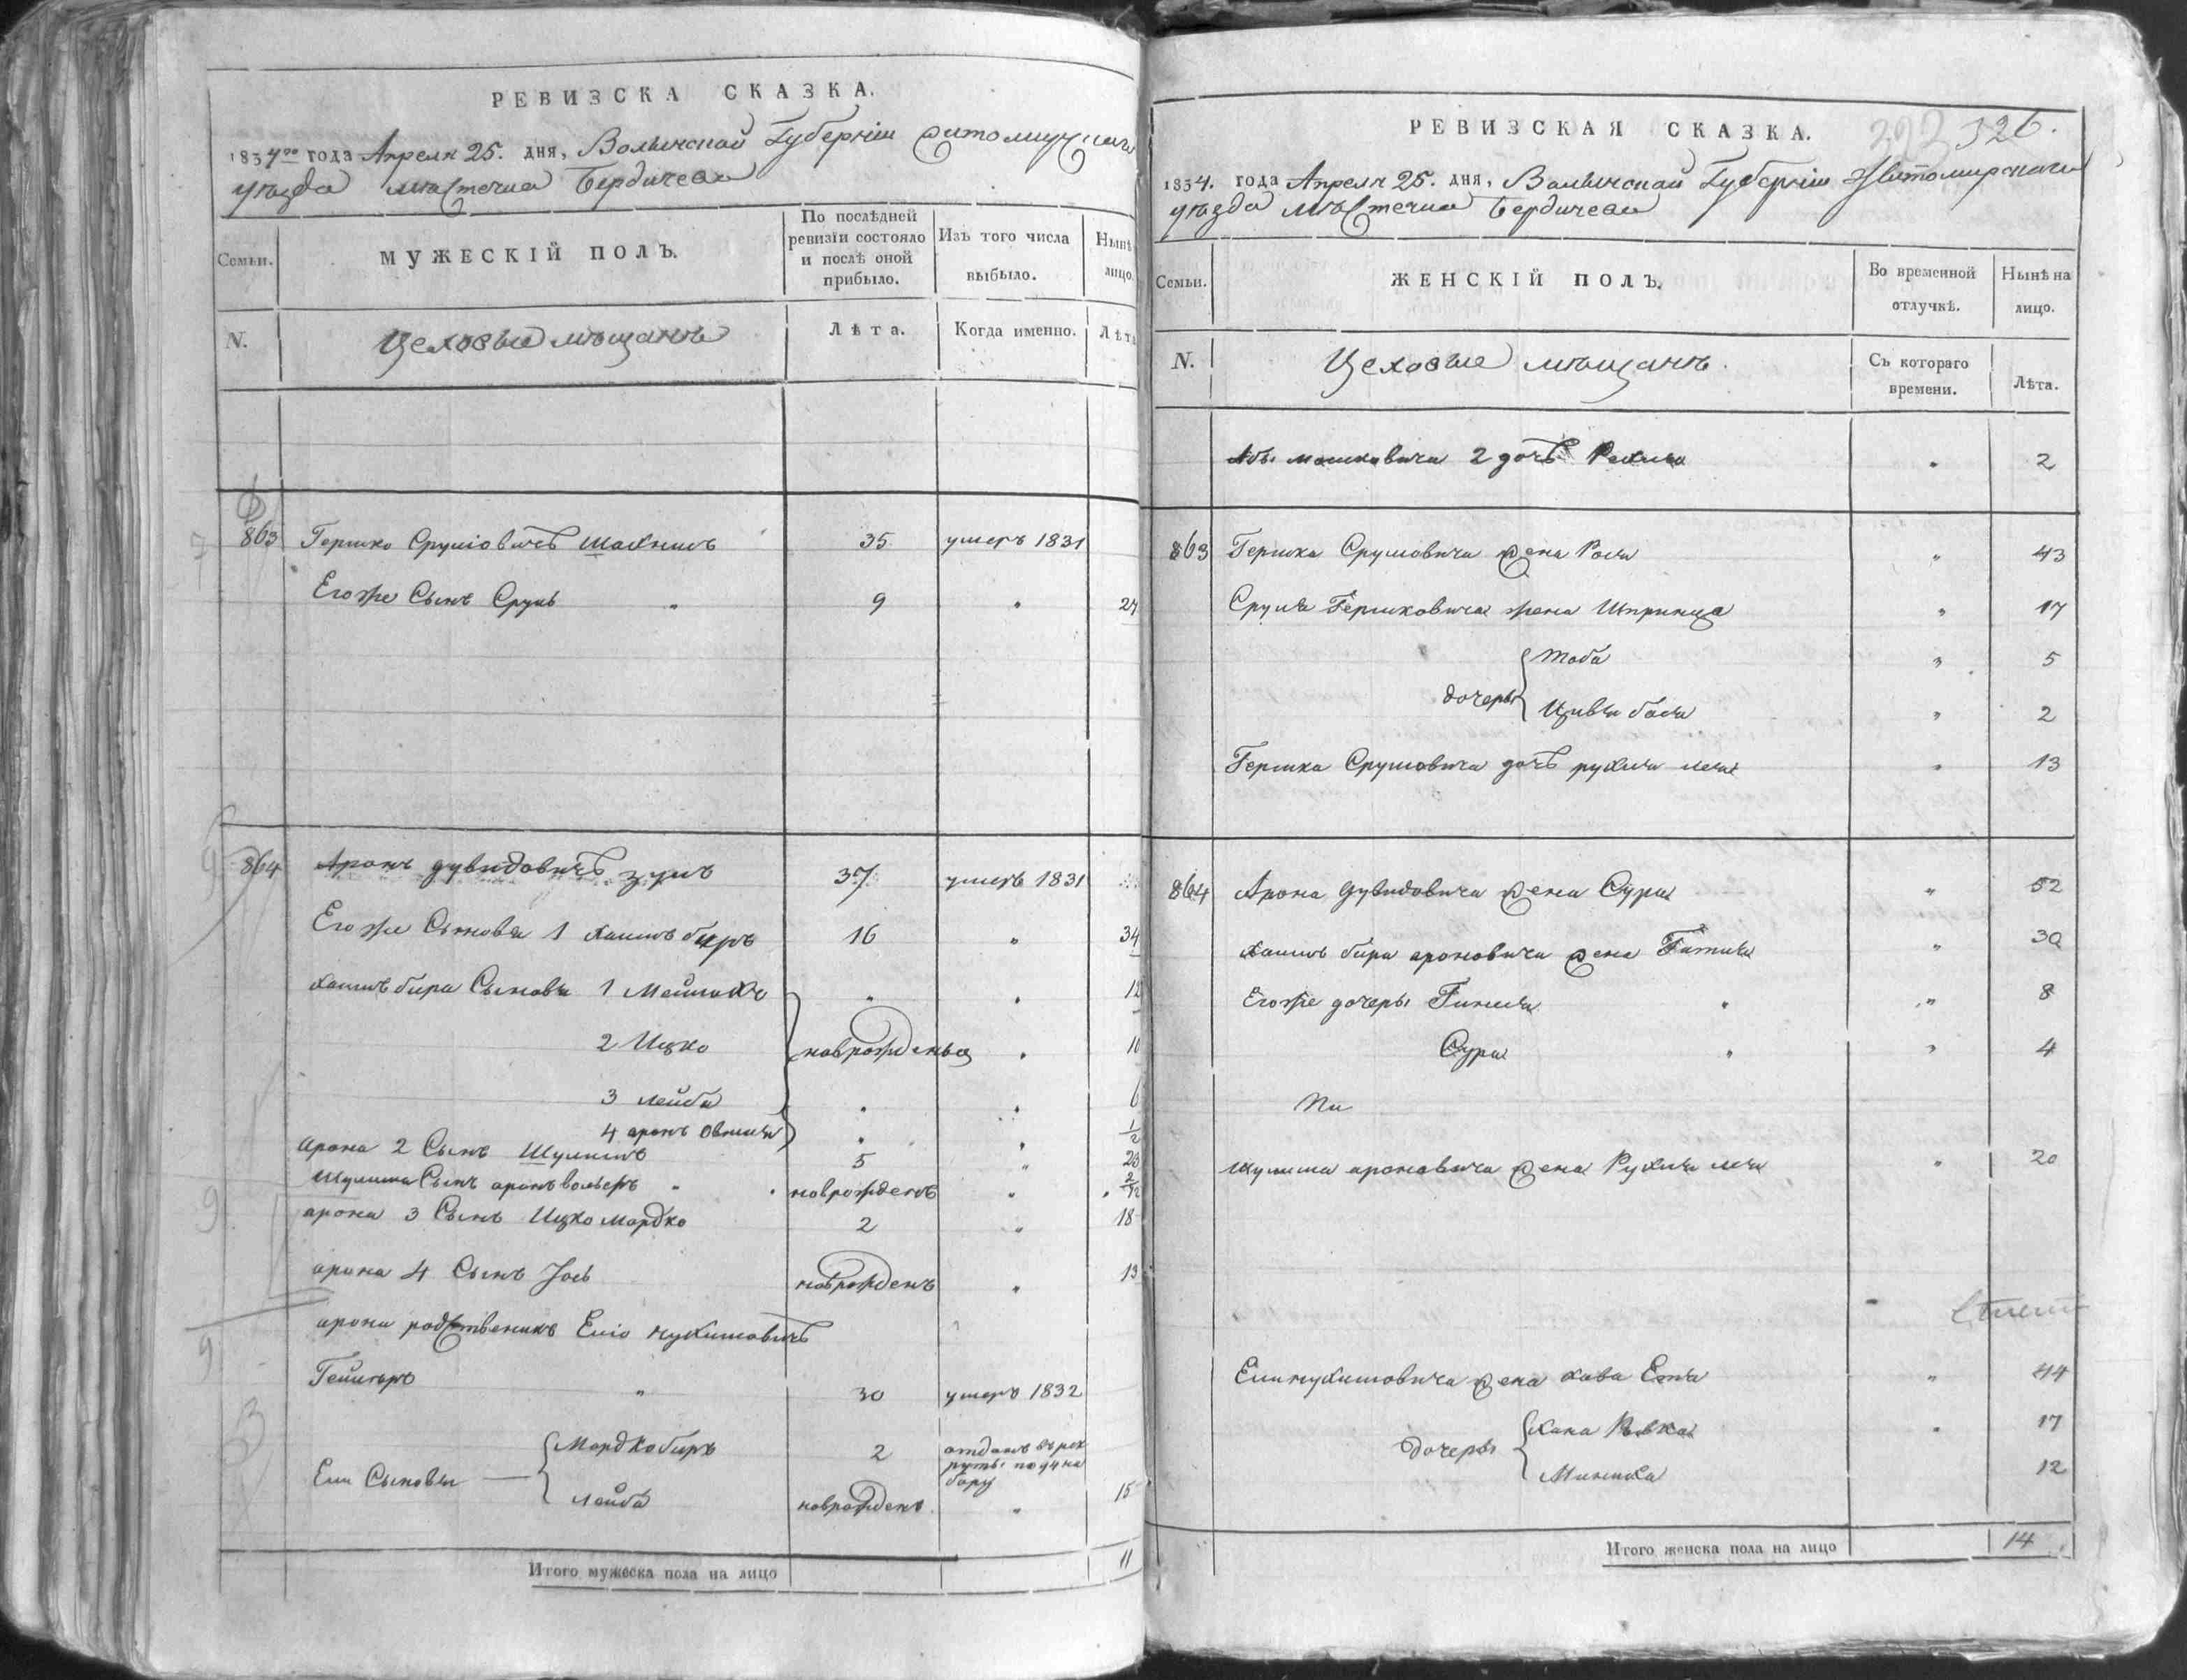 РЕВИЗСКА СКАЗКА.
1834го года Апреля 25. дня, Волынской Губерніи Житомирскаго
уѣзда мѣстечка Бердичева
Семьи.
МУЖЕСКІЙ ПОЛЪ.
По послѣдней ревизіи состояло и послѣ оной прибыло.
Изъ того числа выбыло.
Нынѣ лицо.
N.
Цеховые мѣщанъ
Лѣта.
Когда именно.
Лѣта
863 Гершко Сруліовичъ 35 умеръ 1831
Егоже Сынъ Сруль " 9 " 27
864 Аронъ дувидовичъ 37 умеръ 1831
Егоже Сыновья 1 Хаимъ беръ 16 " 34
Хаимъ бера Сыновья 1 Мейлахъ " " 12
2 Ицко новрожденыя " 10
3 лейба " " 6
4 аронъ " " 1/2
Арона 2 Сынъ Шулимъ 5 " 23
Шулима Сынъ аронъ вольфъ " новрожденъ " 2/12
арона 3 Сынъ Ицко Мордко 2 " 18
арона 4 Сынъ Іось новрожденъ " 13
арона родственикъ Еліо нухимовичъ
" 30 умеръ 1832
Ели Сыновья
Мордко беръ 2 отданъ въ рек
руты по
бору
Лейба новрожденъ " 15
Итого мужеска пола на лицо 11
РЕВИЗСКАЯ СКАЗКА. 292 326.
1834. года Апреля 25. дня, Волынской Губерніи Житомирскаго
уѣзда мѣстечка Бердичева
Семьи.
ЖЕНСКІЙ ПОЛЪ.
Во временной отлучкѣ.
Нынѣ на лицо.
N.
Цеховые мѣщанъ.
Съ котораго времени.
Лѣта.
мошковича 2 дочь Рехля " 2
863 Гершка Срулювича жена Рося " 43
Сруля Гершковича жена Шпринца " 17
дочеры
Тоба " 5
Цивья бася " 2
Гершка Срулювича дочь рухля лея " 13
864 Арона дувидовича жена Сура " 52
Хаимъ бера ароновича жена Гитля " 30
Егоже дочеры " " 8
Сура " " 4
Шулима ароновича жена Рухля лея " 20
Ели нухимовича жена хава Етя " 44
дочеры
Хана Ривка " 17
12
Итого женска пола на лицо 14